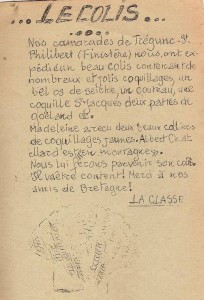 ... LE COLIS ...
Nos camarades de Trégunc-St.
Philibert (Finistère) nous ont ex-
pédié un beau colis contenant de
nombreux et jolis coquillages, un
bel os de seiche, un couteau, une
coquille St-Jacques deux pattes de
goéland etc.
Madeleine a reçu deux beaux colliers
de coquillages jaunes. Albert Chat
ellard des
Nous lui ferons parvenir son colis.
Il va être content! Merci à nos
amis de Bretagne!
LA CLASSE